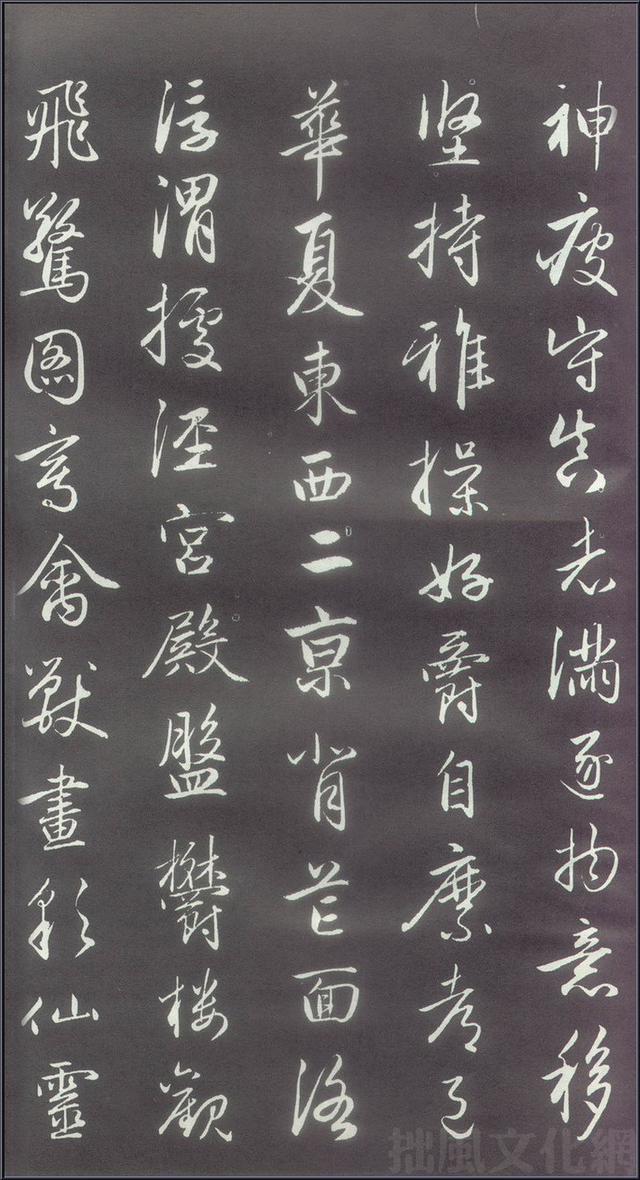 神疲守真志滿逐物意移
堅持雅操好爵自縻都邑
華夏東西二京背芒面洛
浮渭據涇宮殿盤鬱樓觀
飛驚圖寫禽獸畫彩仙靈
拙風文化網